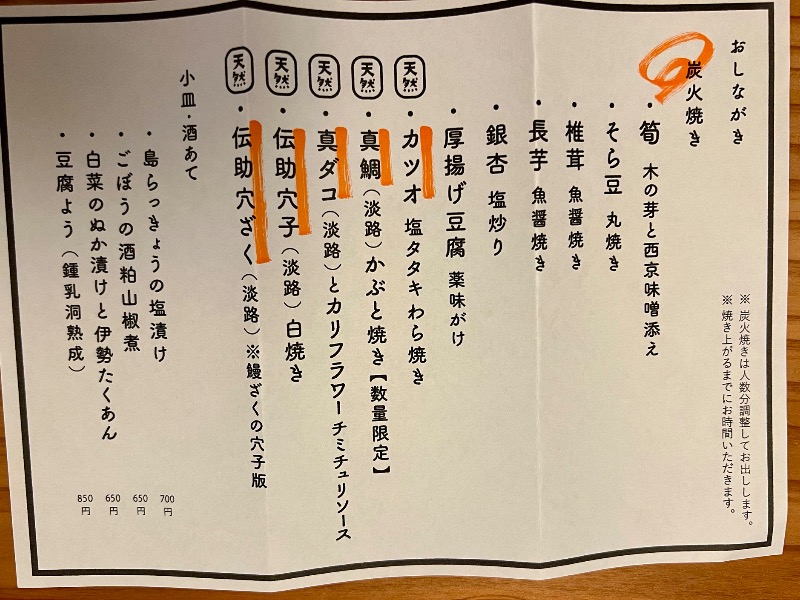 おしながき
※ 炭火焼きは人数分調整してお出しします。
※ 焼き上がるまでにお時間いただきます。
炭火焼き
・筍 木の芽と西京味噌添え
・そら豆 丸焼き
・椎茸 魚醤焼き
・長芋 魚醤焼き
・銀杏 塩炒り
・厚揚げ豆腐 薬味がけ
天然 ・カツオ 塩タタキわら焼き
天然 ・真鯛(淡路)かぶと焼き【数量限定】
天然 ・真ダコ(淡路)とカリフラワーチミチュリソース
天然 ・伝助穴子(淡路)白焼き
天然 ・伝助穴ざく(淡路)※鰻ざくの穴子版
小皿・酒あて
・島らっきょうの塩漬け 700円
・ごぼうの酒粕山椒煮 650円
・白菜のぬか漬けと伊勢たくあん 650円
・豆腐よう(鍾乳洞熟成) 850円